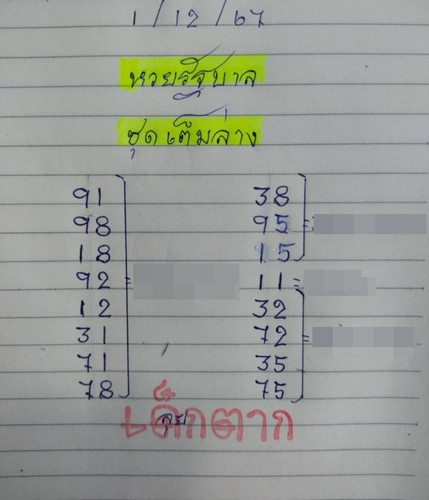 1/12/67
หวยรัฐบาล
ชุดเต็มล่าง
91 38
98 95
18 15
92 = 11 =
12 32
31 72
71 35
78 75
เด็กตาก